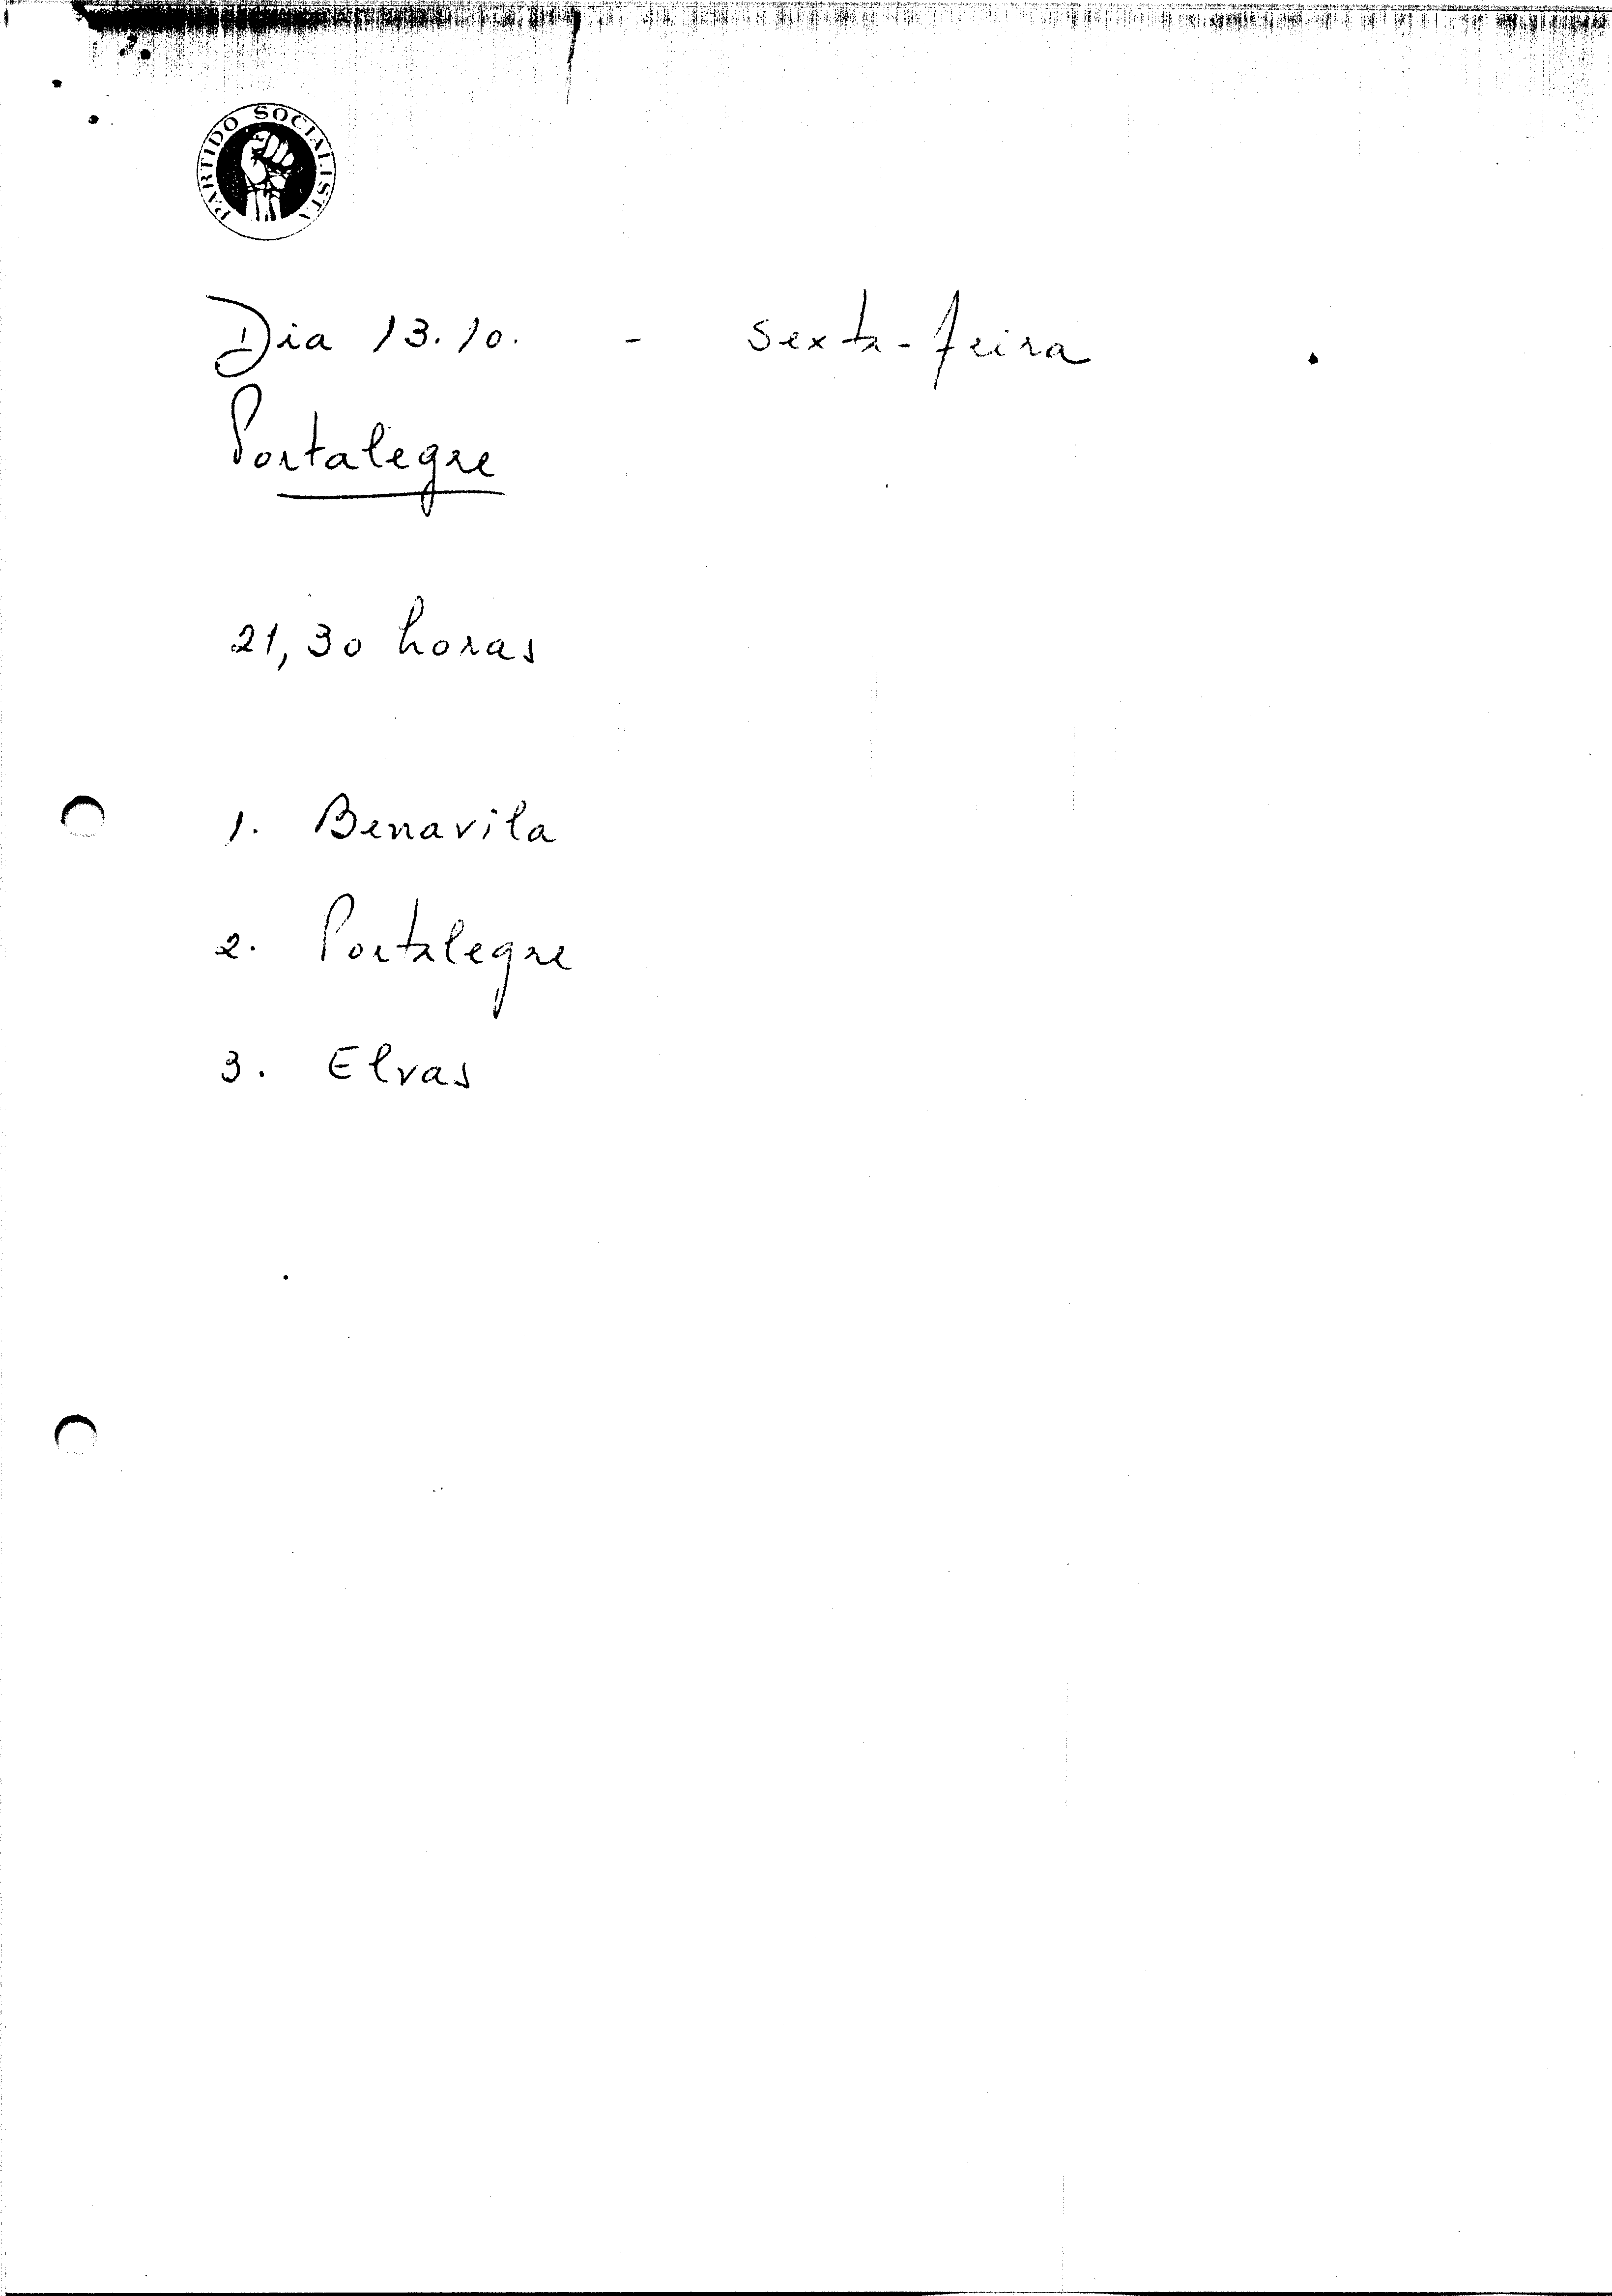 PARTIDO SOCIALISTA
Dia 13.10. - sexta-feira
Portalegre
21,30 horas
1. Benavila
2. Portalegre
3. Elvas